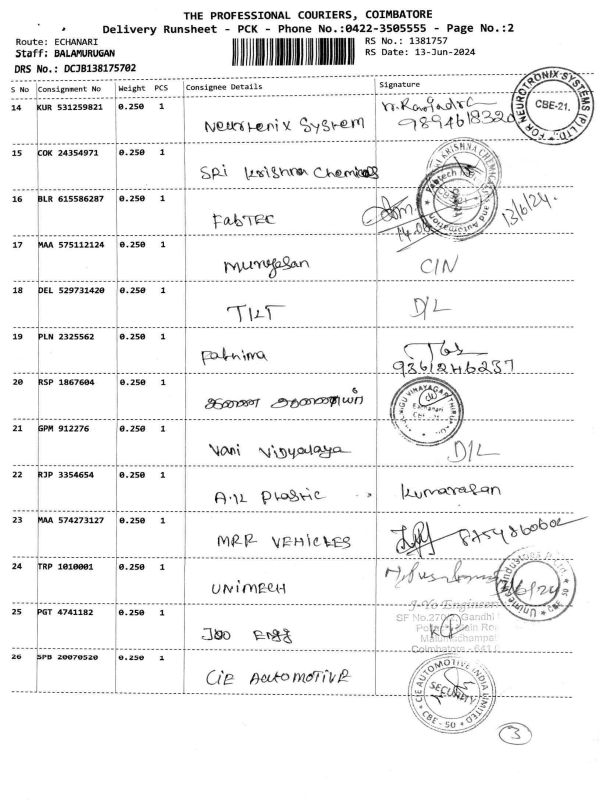 THE PROFESSIONAL COURIERS, COIMBATORE
Delivery Runsheet - PCK - Phone No.:0422-3505555 - Page No.:2
Route: ECHANARI
RS No.: 1381757
Staff: BALAMURUGAN
RS Date: 13-Jun-2024
DRS No.: DCJB138175702
S No Consignment No Weight PCS Consignee Details Signature
14 KUR 531259821 0.250 1 Neurtonix System
9894618320
FOR NEUROTRONIX SYSTEMS (P) LTD., CBE-21.
15 COK 24354971 0.250 1 SRI Krishna Chemicals
KRISHNA CHEMICALS
16 BLR 615586287 0.250 1 FabTEC
Fabtech Automation and
13/6/24.
17 MAA 575112124 0.250 1 Murugesan CIN
18 DEL 529731420 0.250 1 TILT D/L
19 PLN 2325562 0.250 1 Fathima
9361246237
20 RSP 1867604 0.250 1
21 GPM 912276 0.250 1 Vani Vidyalaya D/L
22 RJP 3354654 0.250 1 A.K Plastic Kumarasan
23 MAA 574273127 0.250 1 MRR VEHICLES 8754860602
24 TRP 1010001 0.250 1 UNIMECH
25 PGT 4741182 0.250 1
J-Yo Engineer
SF No.270/ Gandhi
Coimbatore - 641
26 SPB 20070520 0.250 1 CIE AUTOMOTIVE
CIE AUTOMOTIVE INDIA LIMITED SECURITY CBE - 50
3